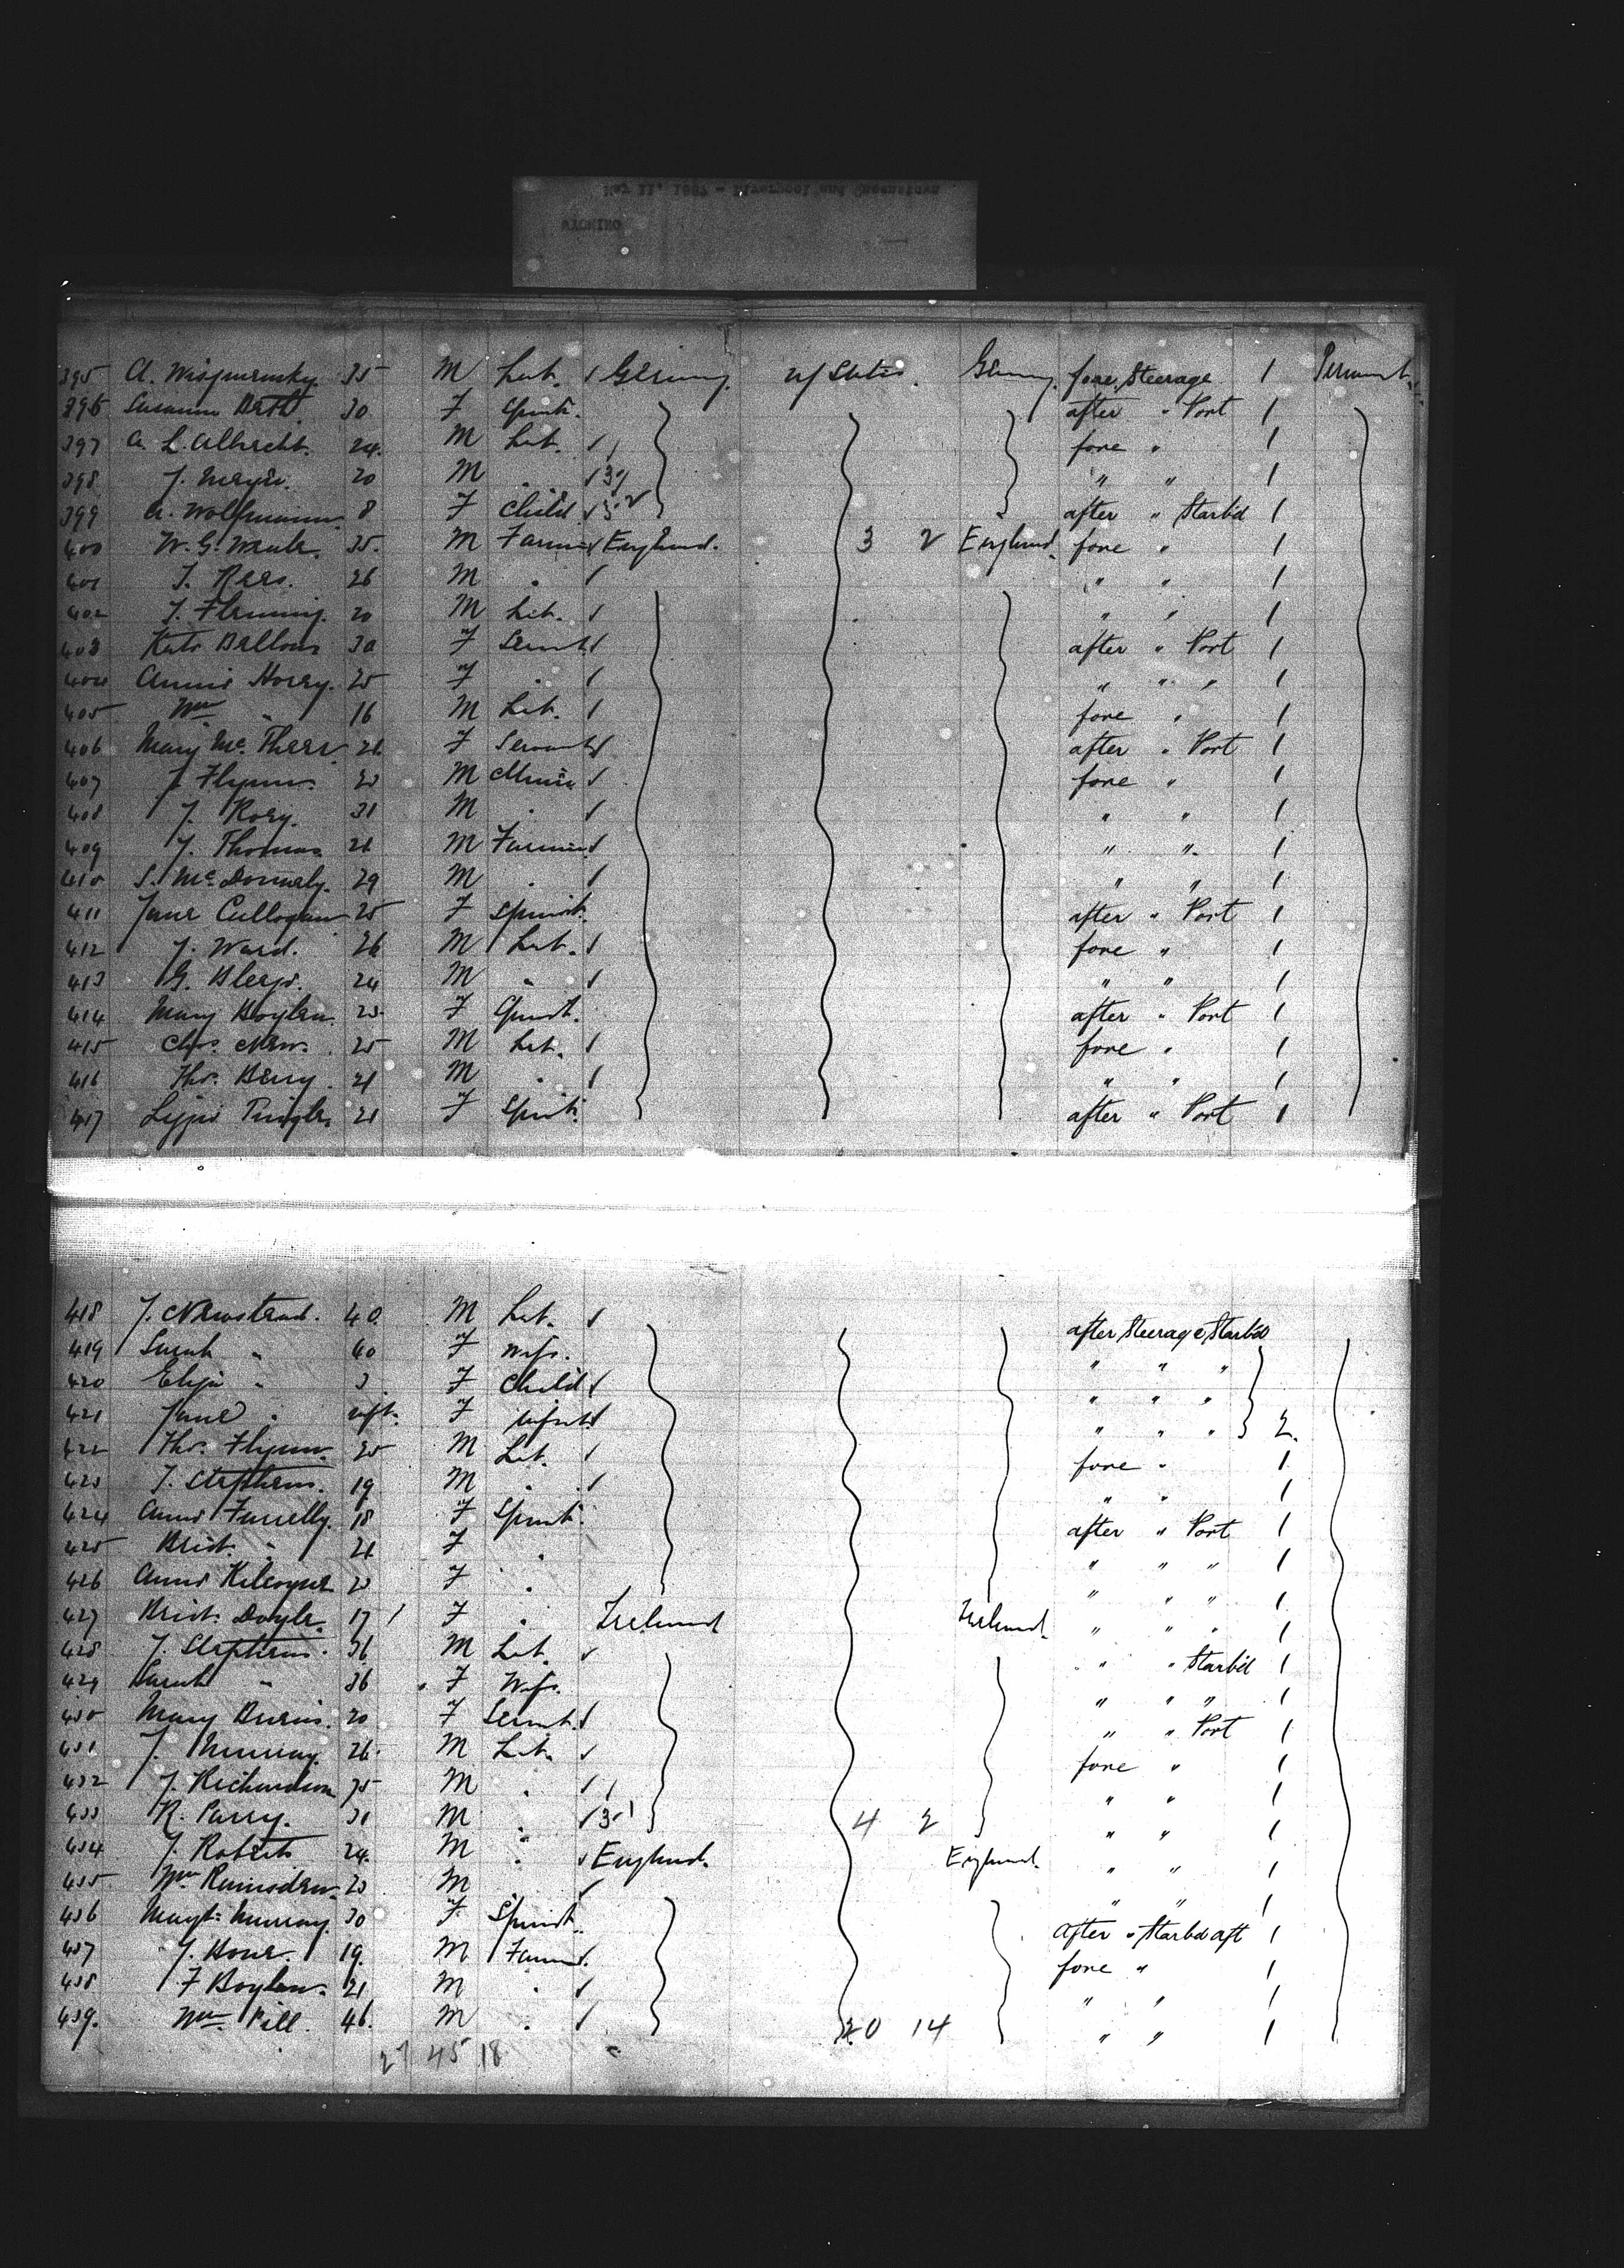 May 11, 1887 - Liverpool and Queenstown
WYOMING
395 A. 35 M Lab. / Germany. U/States. Germany. fore Steerage 1 Permant.
396 Susanna Barth 30 F Spinst. after " Port 1
397 A. L. Albrecht. 24. M Lab. / fore " 1
398 J. Meyer. 20 M . / " " 1
399 A. Wolfmann 8 F Child / after " Starb'd 1
400 W. G. 35. M Farmer / England. 3 2 England. fore " 1
401 J. Rees. 26 M . / " " 1
402 J. Fleming. 20 M Lab. / " " 1
403 Kate Bellows 30 F Servnt / after " Port 1
404 Annie Horey. 25 F . / " " " 1
405 Wm " 16 M Lab. / fore " 1
406 Mary Mc. 26 F Servant / after " Port 1
407 J. Flynn. 23 M Miner / fore " 1
408 J. Rory. 31 M . / " " 1
409 J. Thomas. 26 M Farmer / " " 1
410 S. Mc Donnely. 29 M . / " " 1
411 Jane Cullogan 25 F Spinst. after " Port 1
412 J. Ward. 26 M Lab. / fore " 1
413 G. 24 M " / " " 1
414 Mary Boylen. 23. F Spinst. after " Port 1
415 Chas. New. 25 M Lab. / fore " 1
416 Thos. Berry. 21 M . / " " 1
417 Lizzie Pringle. 21 F Spinst. after " Port 1
418 J. Newstead. 40. M Lab. / after Steerage Starb'd
419 Sarah " 40 F Wife. " " "
420 Eliza " 3 F Child / " " "
421 Jane " inft. F Infant / " " " 2.
422 Thos. Flynn. 25 M Lab. / fore " 1
423 J. Stephens. 19 M . / " " 1
424 Annie Farrelly. 18 F Spinst. after " Port 1
425 Bridt. " 21 F . " " " 1
426 Annie Kilcoyne 23 F . " " " 1
427 Bridt. Doyle. 17 / F . Ireland Ireland. " " " 1
428 J. Stephens. 36 M Lab. / " " Starb'd 1
429 Sarah " 36 F Wife. " " " 1
430 Mary Burns. 20 F Servnt. / " " Port 1
431 J. Murray. 26. M Lab. / fore " 1
432 J. Richardson 35 M . / " " 1
433 R. Parry. 31 M . / 4 2 " " 1
434 J. Roberts 24. M . / England. England. " " 1
435 Wm. Ramsden. 23 M . / " " 1
436 Magt. Murray. 30 F Spinst. after " Starb'd aft 1
437 J. Hone. 19. M Farmr. / fore " 1
438 F Boylan. 21, M . / " " 1
439. Wm. Pill. 46. M . / 20 14 " " 1
27 45 18